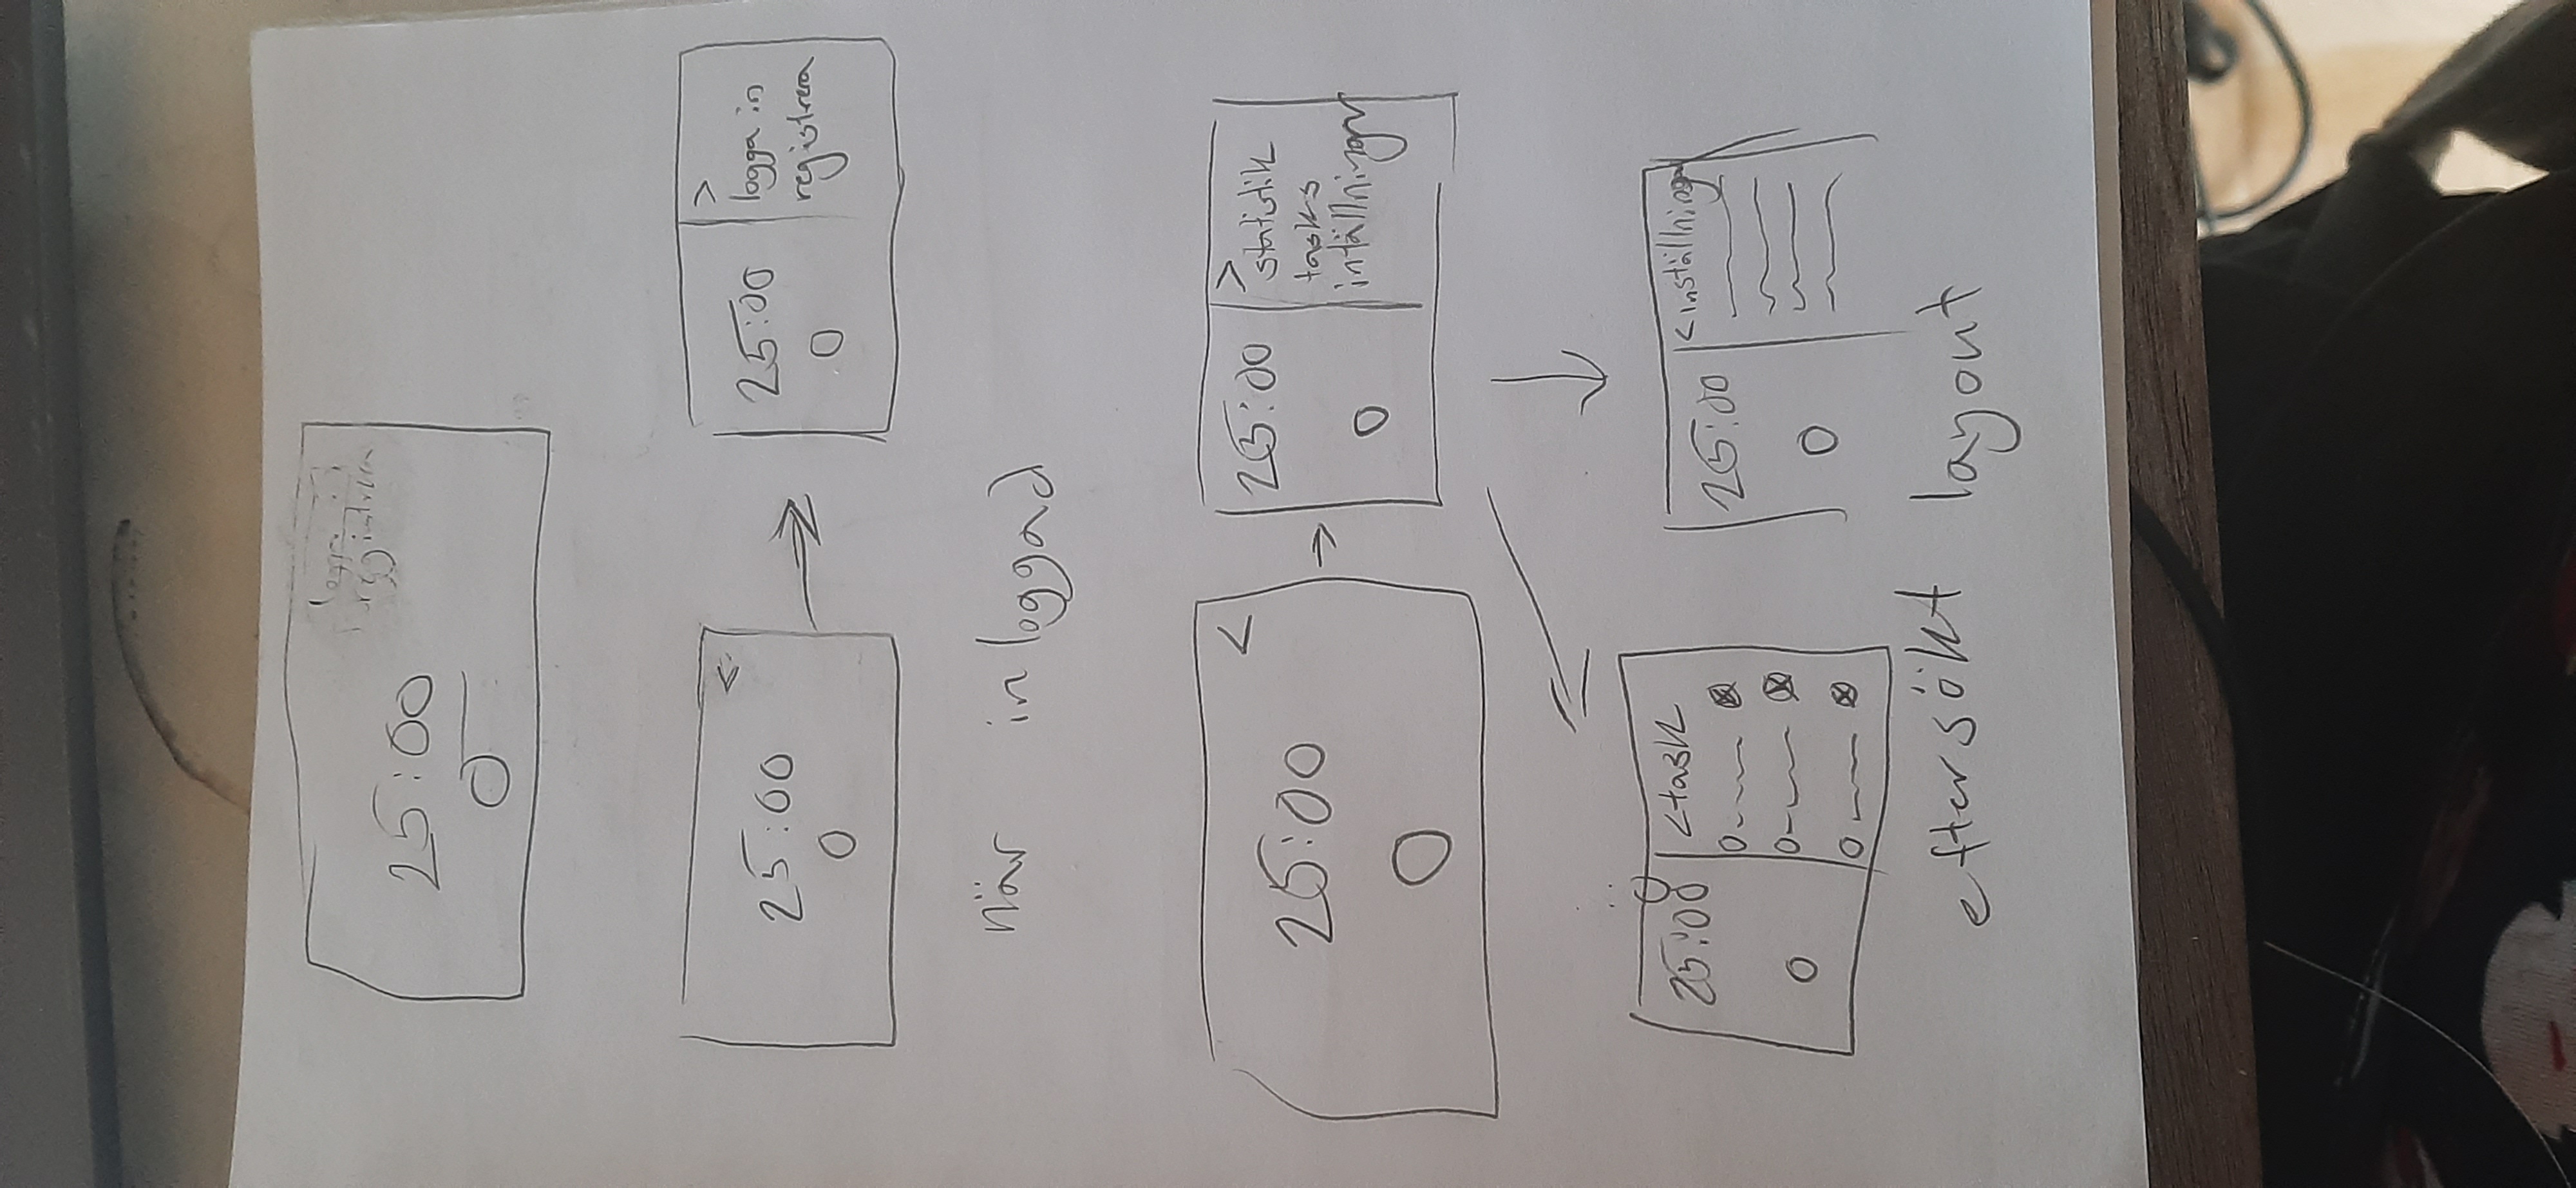 logga in
registrera
25:00
<
25:00
>
25:00
logga in
registrera
när inloggad
<
25:00
>
25:00
statistik
tasks
intällningar
25:00
<task
25:00
<inställningar
eftersökt layout